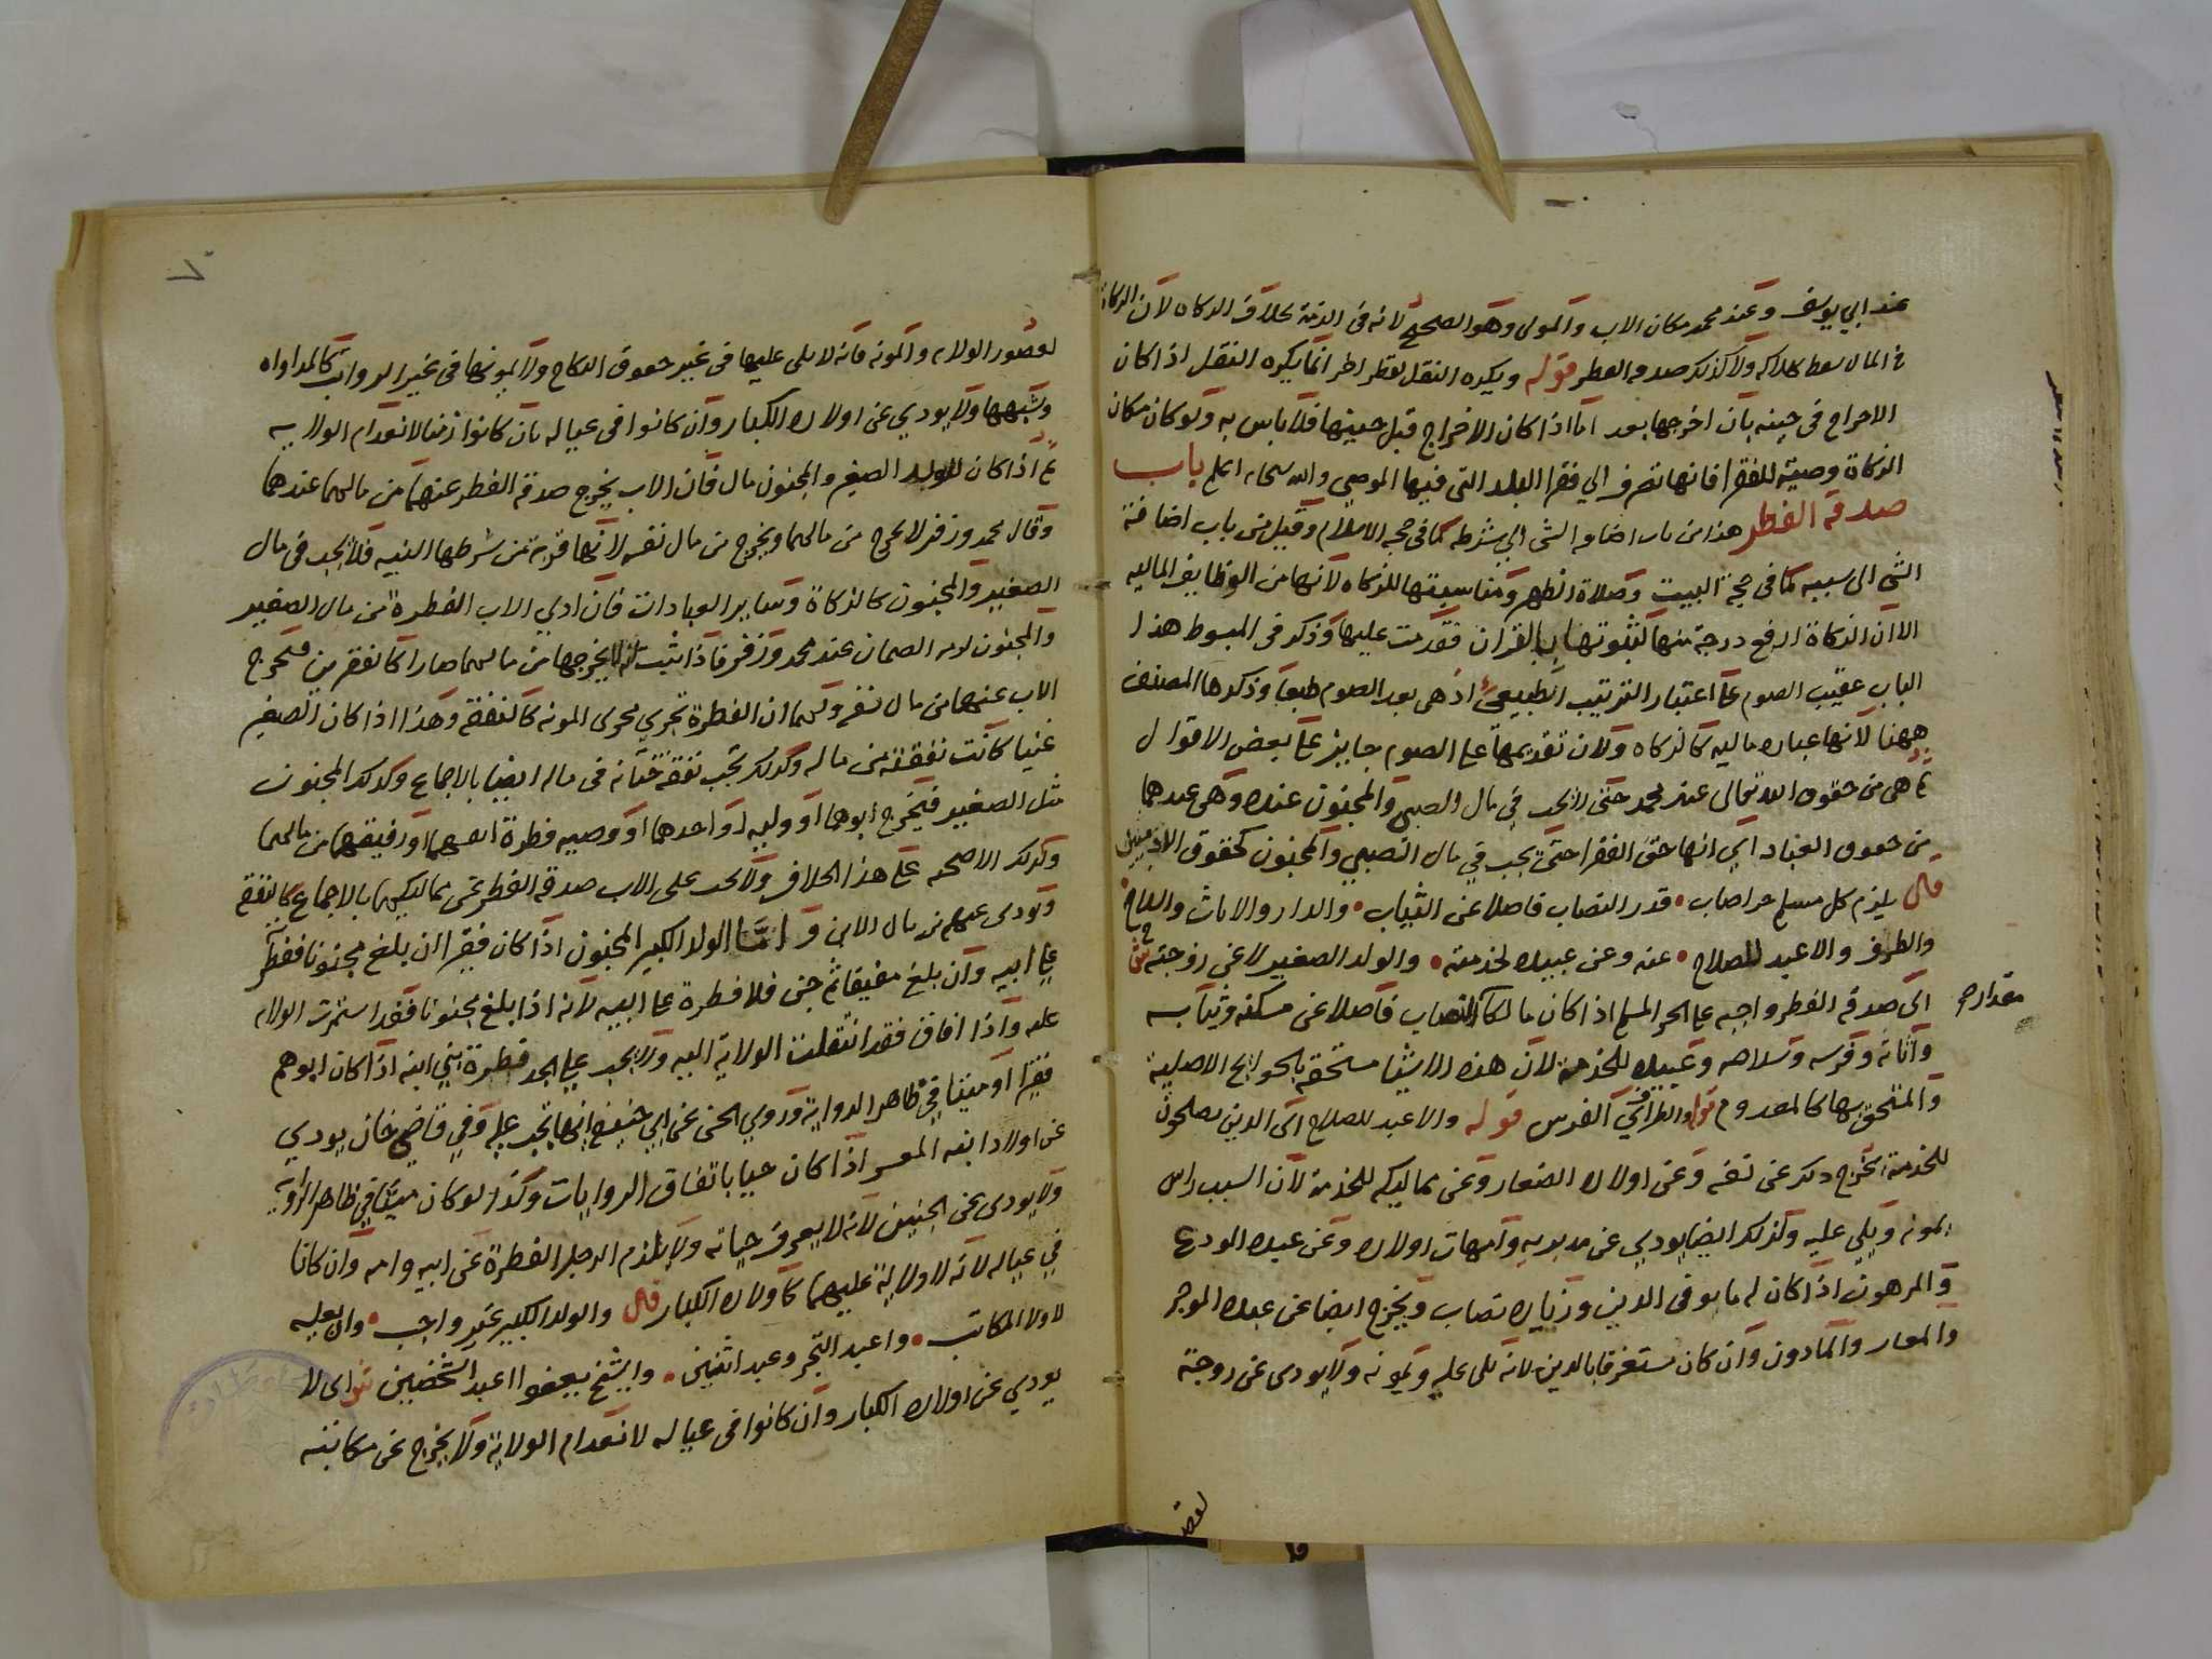 عند ابي يوسف وعند محمد مكان الاب والمولى وهو الصحيح لانه في الذمة بخلاف الزكاه لان الزكاة
في المال سقط بهلاكه ولا كذلك صدقه الفطر قوله ويكره النقل لقطر اخر انما يكره النقل اذا كان
الاخراج في حينه بان اخرجها بعد اما اذا كان الاخراج قبل حينها فلا باس به ولو كان مكان
الزكاة وصية للفقرا فانها تصرف الي فقرا البلد التي فيها الموصي والله سبحانه اعلم باب
صدقة الفطر هذا من باب اضافه الشي الي شرطه كما في حجه الاسلام وقيل من باب اضافة
الشي الى سببه كما في حجة البيت وصلاة الظهر ومناسبتها للزكاه لانها من الوظايف الماليه
الا ان الزكاة ارفع درجة منها لثبوتها بالقران فقدمت عليها وذكر في المبسوط هذا
الباب عقيب الصوم على اعتبار الترتيب الطبيعي اذ هي بعد الصوم طبعا وذكرها المصنف
ههنا لانها عباده ماليه كالزكاه ولان تقديمها على الصوم جايز على بعض الاقوال
ثم هي من حقوق الله تعالى عند محمد حتى لا تجب في مال الصبي والمجنون عنده وهي عندهما
من حقوق العباد اي انها حق الفقرا حتى تجب في مال الصبي والمجنون كحقوق الادميين
قال يلزم كل مسلم حر اصاب • قدر النصاب فاضلا عن الثياب • والدار والاثاث والسلاح
والطرف والاعبد للصلاح • عنه وعن عبيده لخدمته • والولد الصغير لا عن زوجته ش
اى صدقه الفطر واجبه على الحر المسلم اذا كان مالكا النصاب فاضلا عن مسكنه وثيابه
مقداره
واثاثه وفرسه وسلاحه وعبيده للخدمة لان هذه الاشيا مستحقه بالحوايج الاصلية
والمستحق بها كالمعدوم قوله والطرف اي الفرس قوله والاعبد للصلاح اى الذين يصلحون
للخدمة يخرج ذلك عن نفسه وعن اولاده الصغار وعن مماليكه للخدمة لان السبب راس
يمونه ويلي عليه وكذلك ايضا يودي عن مدبريه وامهات اولاده وعن عبده المودع
والمرهون اذا كان له ما يوفي الدين وزياده نصاب ويخرج ايضا عن عبده الموجر
والمعار والماذون وان كان مستغرقا بالدين لانه يلي عليه ويمونه ولا يودى عن زوجته
لقصور الولايه والمونه فانه لا يلى عليها في غير حقوق النكاح ولا يمونها في غير الرواتب كالمداواه
وشبهها ولا يودي عن اولاده الكبار وان كانوا في عياله بان كانوا زمنا لانعدام الولايه
ثم اذا كان للولد الصغير والمجنون مال فان الاب يخرج صدقه الفطر عنهما من مالهما عندهما
وقال محمد وزفر لا يخرج من مالهما ويخرج من مال نفسه لانها قربة من شرطها النيه فلا تجب في مال
الصغير والمجنون كالزكاة وساير العبادات فان ادي الاب الفطرة من مال الصغير
والمجنون لزمه الضمان عند محمد وزفر فاذا ثبت انه لا يخرجها من مالهما صارا كالفقيرين فيخرج
الاب عنهما من مال نفسه ولهما ان الفطرة تجري مجرى المونه كالنفقة وهذا اذا كان الصغير
غنيا كانت نفقته من ماله وكذلك تجب نفقة ختانه في ماله ايضا بالاجماع وكذلك المجنون
مثل الصغير فيخرج ابوهما او وليه او احدهما او وصيه فطرة انفسهما ورفيقهما من مالهما
وكذلك الاضحيه على هذا الخلاف ولا تجب على الاب صدقه الفطر عن مماليكهما بالاجماع كالنفقه
وتودى عنهم من مال الابن واما الولد الكبير المجنون اذا كان فقيرا ان بلغ مجنونا ففطرته
على ابيه وان بلغ مفيقا ثم جن فلا فطرة على ابيه لانه اذا بلغ مجنونا فقد استمرت الولايه
عليه واذا افاق فقد انتقلت الولاية اليه ولا يجب على الجد فطرة بني ابنه اذا كان ابوهم
فقيرا او ميتا في ظاهر الرواية وروي الحسن عن ابي حنيفه انها تجب عليه وفي قاضي خان يودي
عن اولاد ابنه المعسر اذا كان حيا باتفاق الروايات وكذا لو كان ميتا في ظاهر الرواية
ولا يودى عن الجنين لانه لا يعرف حياته ولا يلزم الرجل الفطرة عن ابيه وامه وان كانا
في عياله لانه لا ولاية عليهما كاولاده الكبار قال والولد الكبير غير واجب • وان يعوله
لا ولا المكاتب • واعبد التجر وعبد اثنين • والشيخ يعفو اعبد الشخصين ش اى لا
يودي عن اولاده الكبار وان كانوا في عياله لانعدام الولاية ولا يخرج عن مكاتبه
لقصور